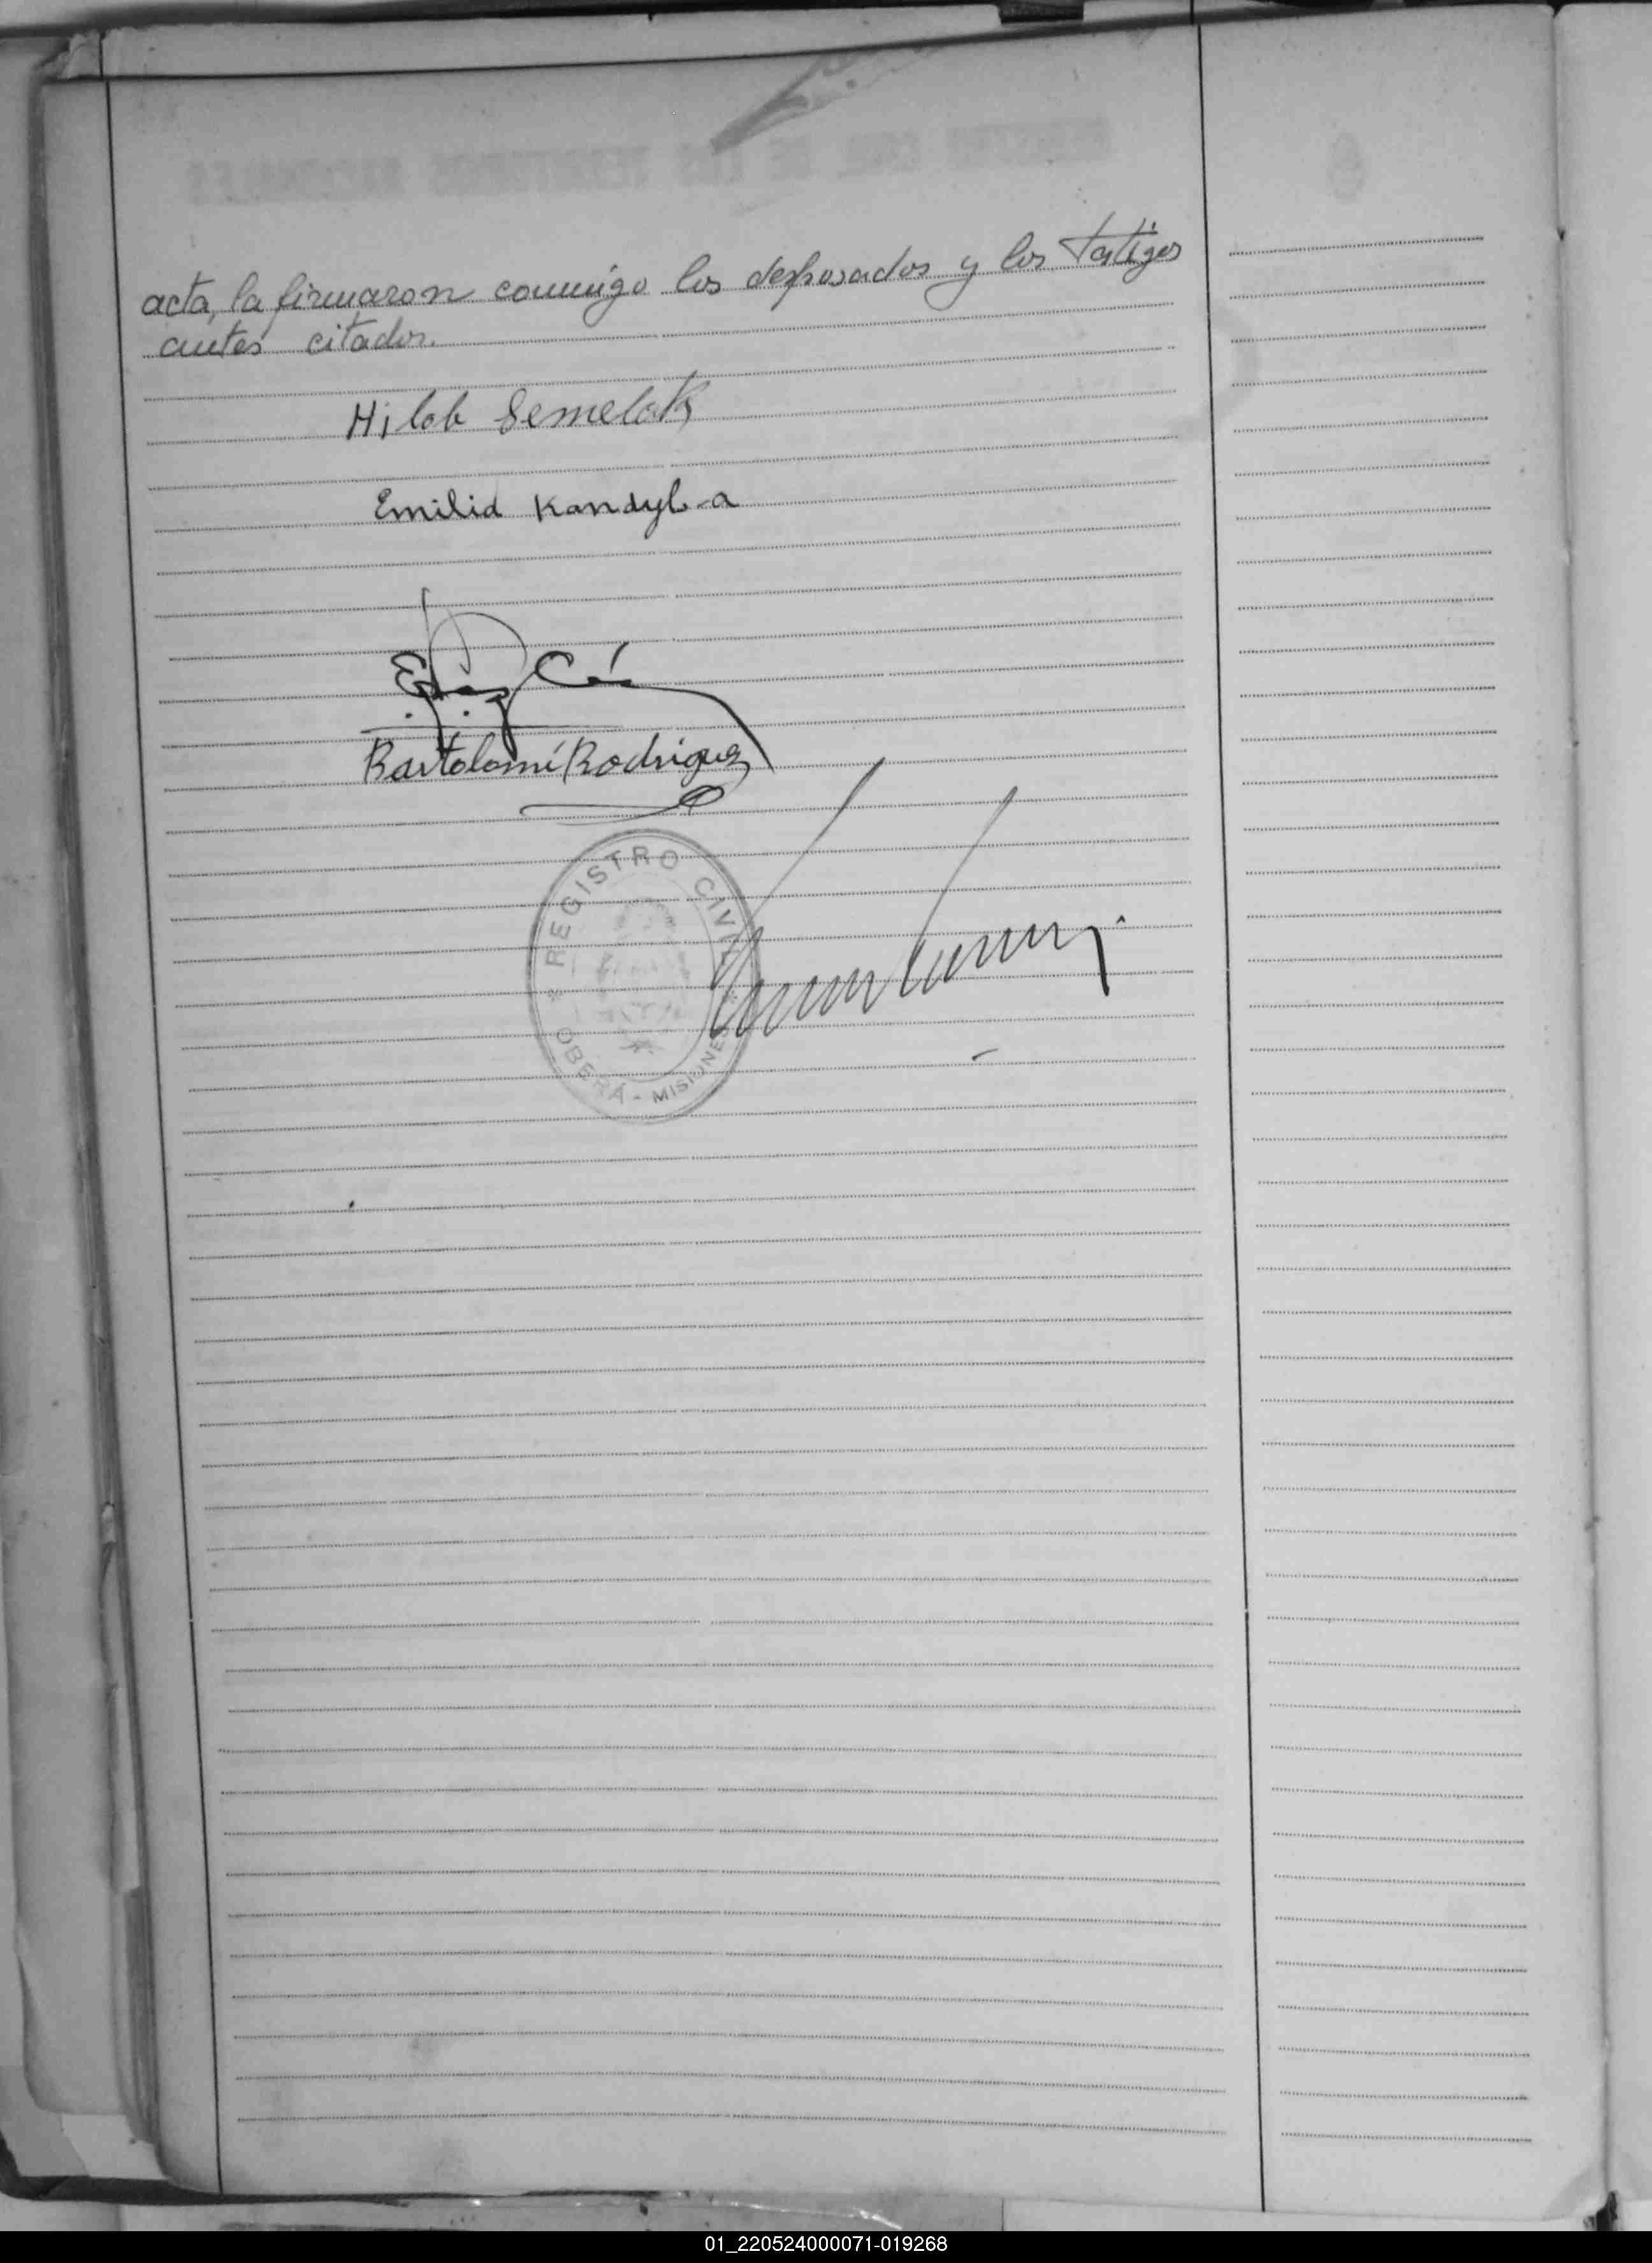 acta, la firmaron conmigo los desposados y los testigos
antes citados.
Hilob Semelak
Emilia Kandyba
Bartolomé Rodriguez
REGISTRO CIVIL
OBERÁ - MISIONES
01_220524000071-019268